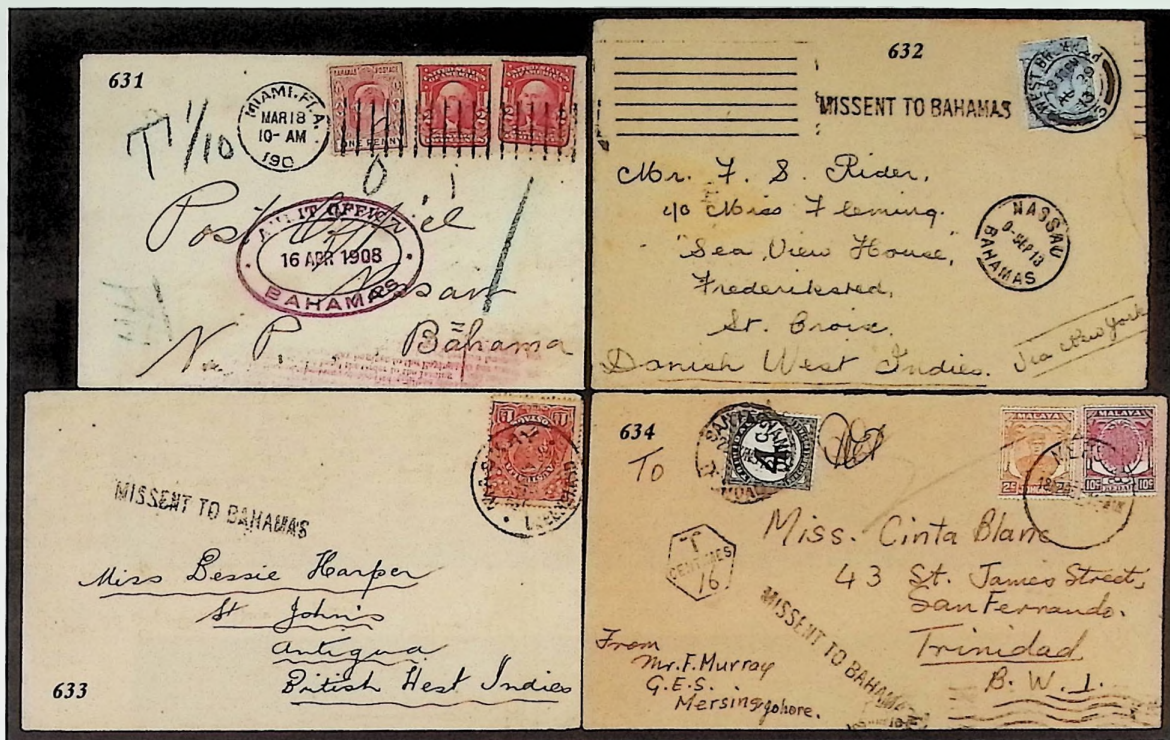 631
T 1/10
MIAMI, FLA.
MAR 18
10-AM
190
ONE PENNY
2 2
2 2
0 1
Post
AUDIT OFFICE
16 APR 1908
BAHAMAS
Nassau
N. P. Bahama
632
MISSENT TO BAHAMAS
WEST BR
Mr. F. S. Rider,
c/o Miss Fleming.
"Sea View House,
Frederiksted,
St. Croix.
Danish West Indies.
Via New York
NASSAU
9-SEP 13
BAHAMAS
MISSENT TO BAHAMAS
Miss Bessie Harper
St John's
Antigua
British West Indies
633
634
To
4
MALAYA MALAYA
2c JOHORE 10c 10c
T
CENTIMES
16
Miss. Cinta Blanc
43 St. James Street,
San Fernando.
Trinidad
B. W. I.
MISSENT TO BAHAMAS
From
Mr. F. Murray
G.E.S.
Mersing Johore.